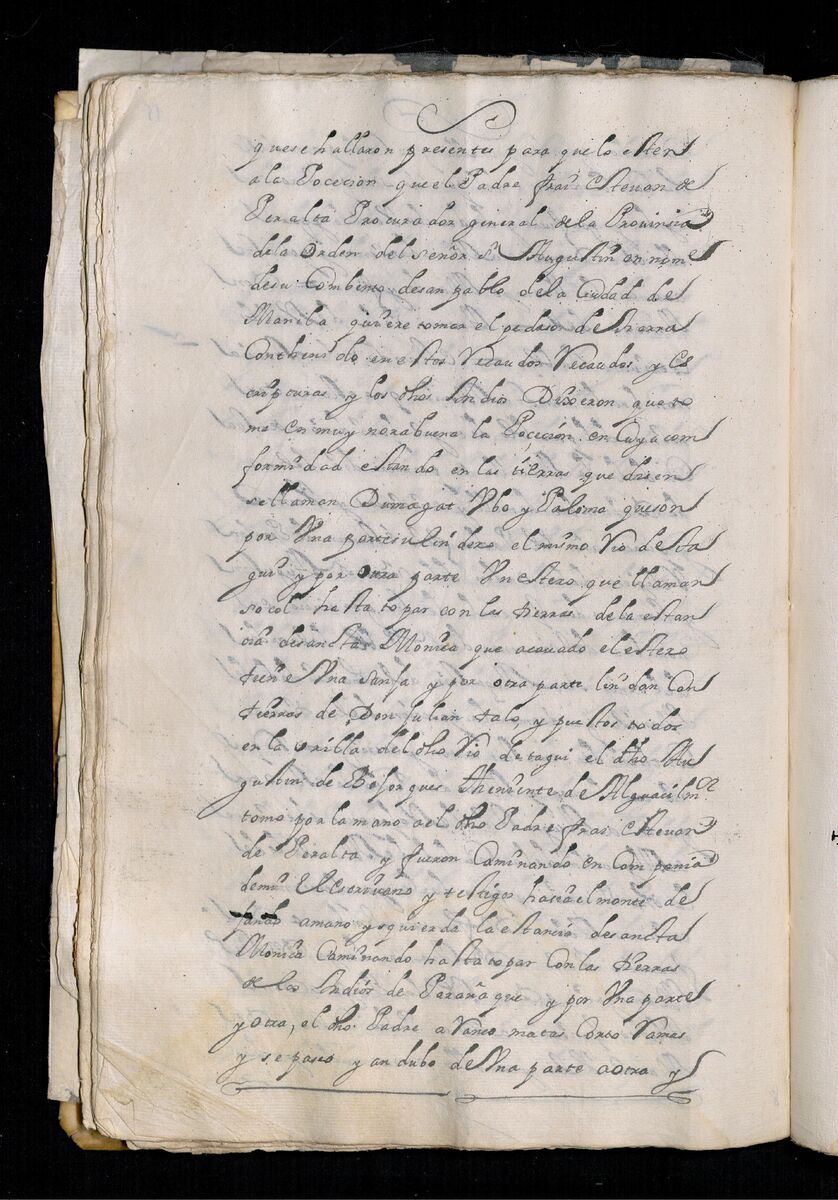 quese hallaron presentes para quelo esten
a la Pocecion que el Padre frai Estevan de
Peralta Procurador general de la Provinsia
dela Orden del señor Sn Augustin en nome
desu Combento desan pablo dela Ciudad de
Manila quiere tomar el pedaso de tierra
Conthenido en estos Recaudos y Es
cripturas y los dhos Indios Dixeron que to
me en muy norabuena la Poçecion en Cuya com
formidad estando en las tierras que disen
sellaman Dumagat Vbo y Palomo queson
por Vna parte su lindero el mismo Rio de ta
gui y por Otra parte Vn estero que llaman
socol hasta topar con las tierras dela estan
cia desancta Monica que acavado el estero
tiene Vna sanja y por otra parte lindan Con
tierras de Don Julian talo y puestos todos
en la orilla del dho Rio de tagui el dho Au
gustin de Bojorques Theniente de Alguacil mor
tomo por la mano a el dho Padre frai Estevan
de Peralta y fueron Caminando en Compania
demi El escrivano y testigos hasta el monte de
amano ysquierda la estancia desancta
Monica Caminando hasta topar Con las tierras
de los Indios de Parañaque y por Vna parte
y otra, el dho Padre a Ranco matas Corto Ramas
y se paseo y andubo de Vna parte aotra y